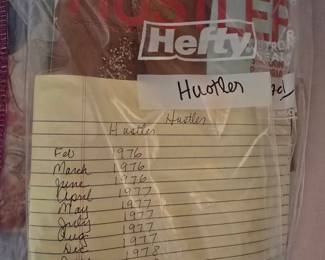 HUSTLE
Hefty
Hustler
Hustler
Hustler
Feb 1976
March 1976
June 1976
April 1977
May 1977
July 1977
Aug 1977
Dec 1978